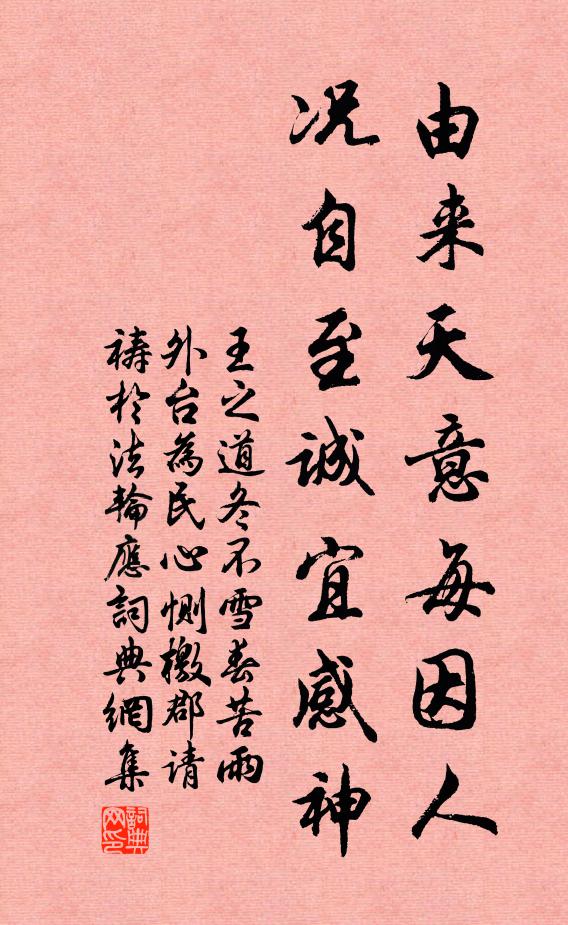 由来天意每因人
况自至誠宜感神
王之道冬不雪春苦雨
外台為民心惻檄郡请
祷於法輪應詞典網集
詞典网印